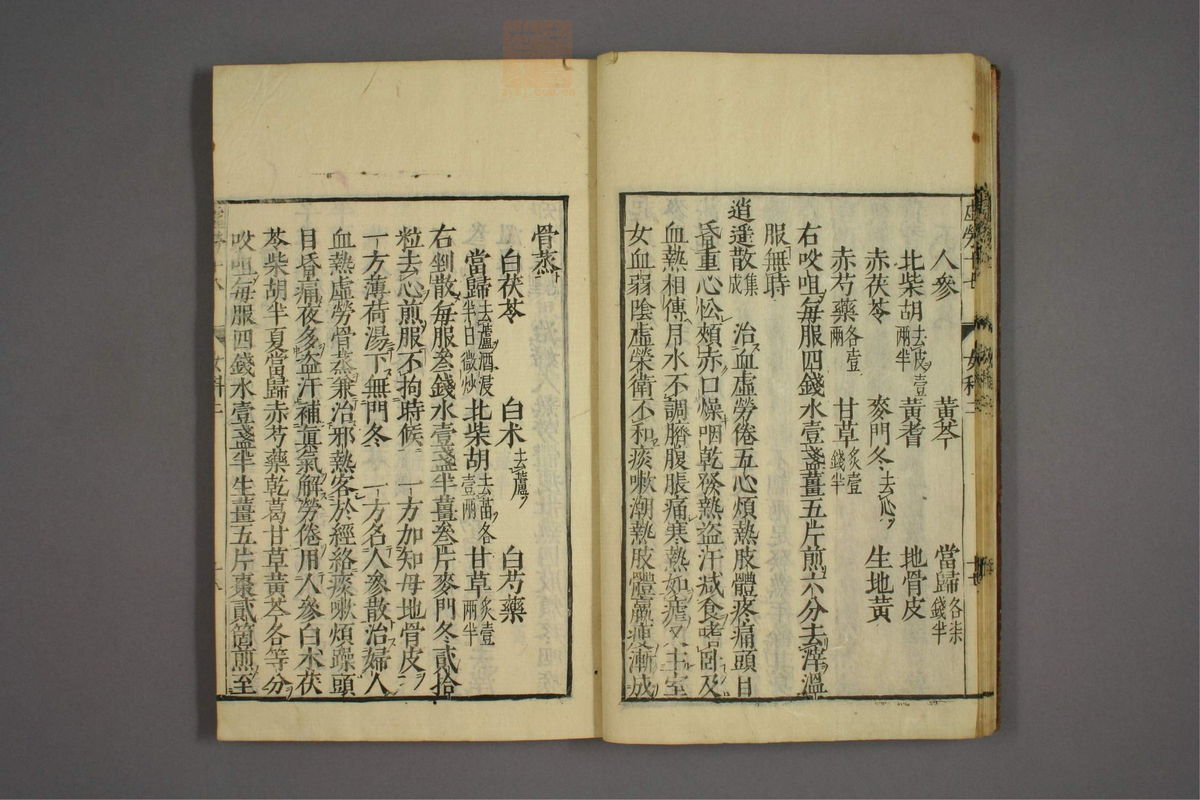 人參　黃芩　當歸各柒錢半
北柴胡去皮壹兩半　黃耆　地骨皮
赤茯苓　麥門冬去心　生地黃
赤芍藥各壹兩　甘草炙壹錢半
右㕮咀每服四錢水壹盞薑五片煎六分去滓溫
服無時
逍遥散集成　治血虛勞倦五心煩熱肢體疼痛頭目
昏重心忪頰赤口燥咽乾發熱盜汗減食嗜臥及
血熱相傳月水不調臍腹脹痛寒熱如瘧又主室
女血弱陰虛榮衛不和痰嗽潮熱肢體羸痩漸成
骨蒸
白茯苓　白朮去蘆　白芍藥
當歸去蘆酒浸半日微炒　北柴胡去苗各壹兩　甘草炙壹兩半
右剉散每服叁錢水壹盞半薑叁片麥門冬貳拾
粒去心煎服不拘時候　一方加知母地骨皮
一方薄荷湯下無門冬　一方名人參散治婦人
血熱虛勞骨蒸兼治邪熱客於經絡痰嗽煩躁頭
目昏痛夜多盜汗補眞氣解勞倦用人參白朮茯
苓柴胡半夏當歸赤芍藥乾葛甘草黃芩各等分
㕮咀每服四錢水壹盞半生薑五片棗貳箇煎至
女科二